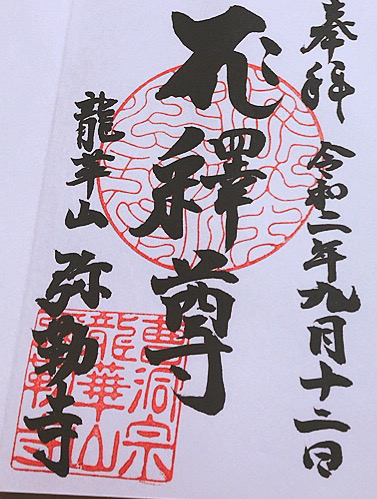 奉拝 令和二年九月十二日
釋尊
龍華山 弥勒寺
曹洞宗
龍華山